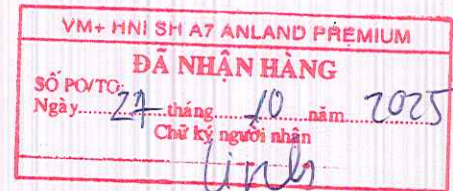 VM+ HNI SH A7 ANLAND PREMIUM
ĐÃ NHẬN HÀNG
SỐ PO/TO:
Ngày 27 tháng 10 năm 2025
Chữ ký người nhận
Linh